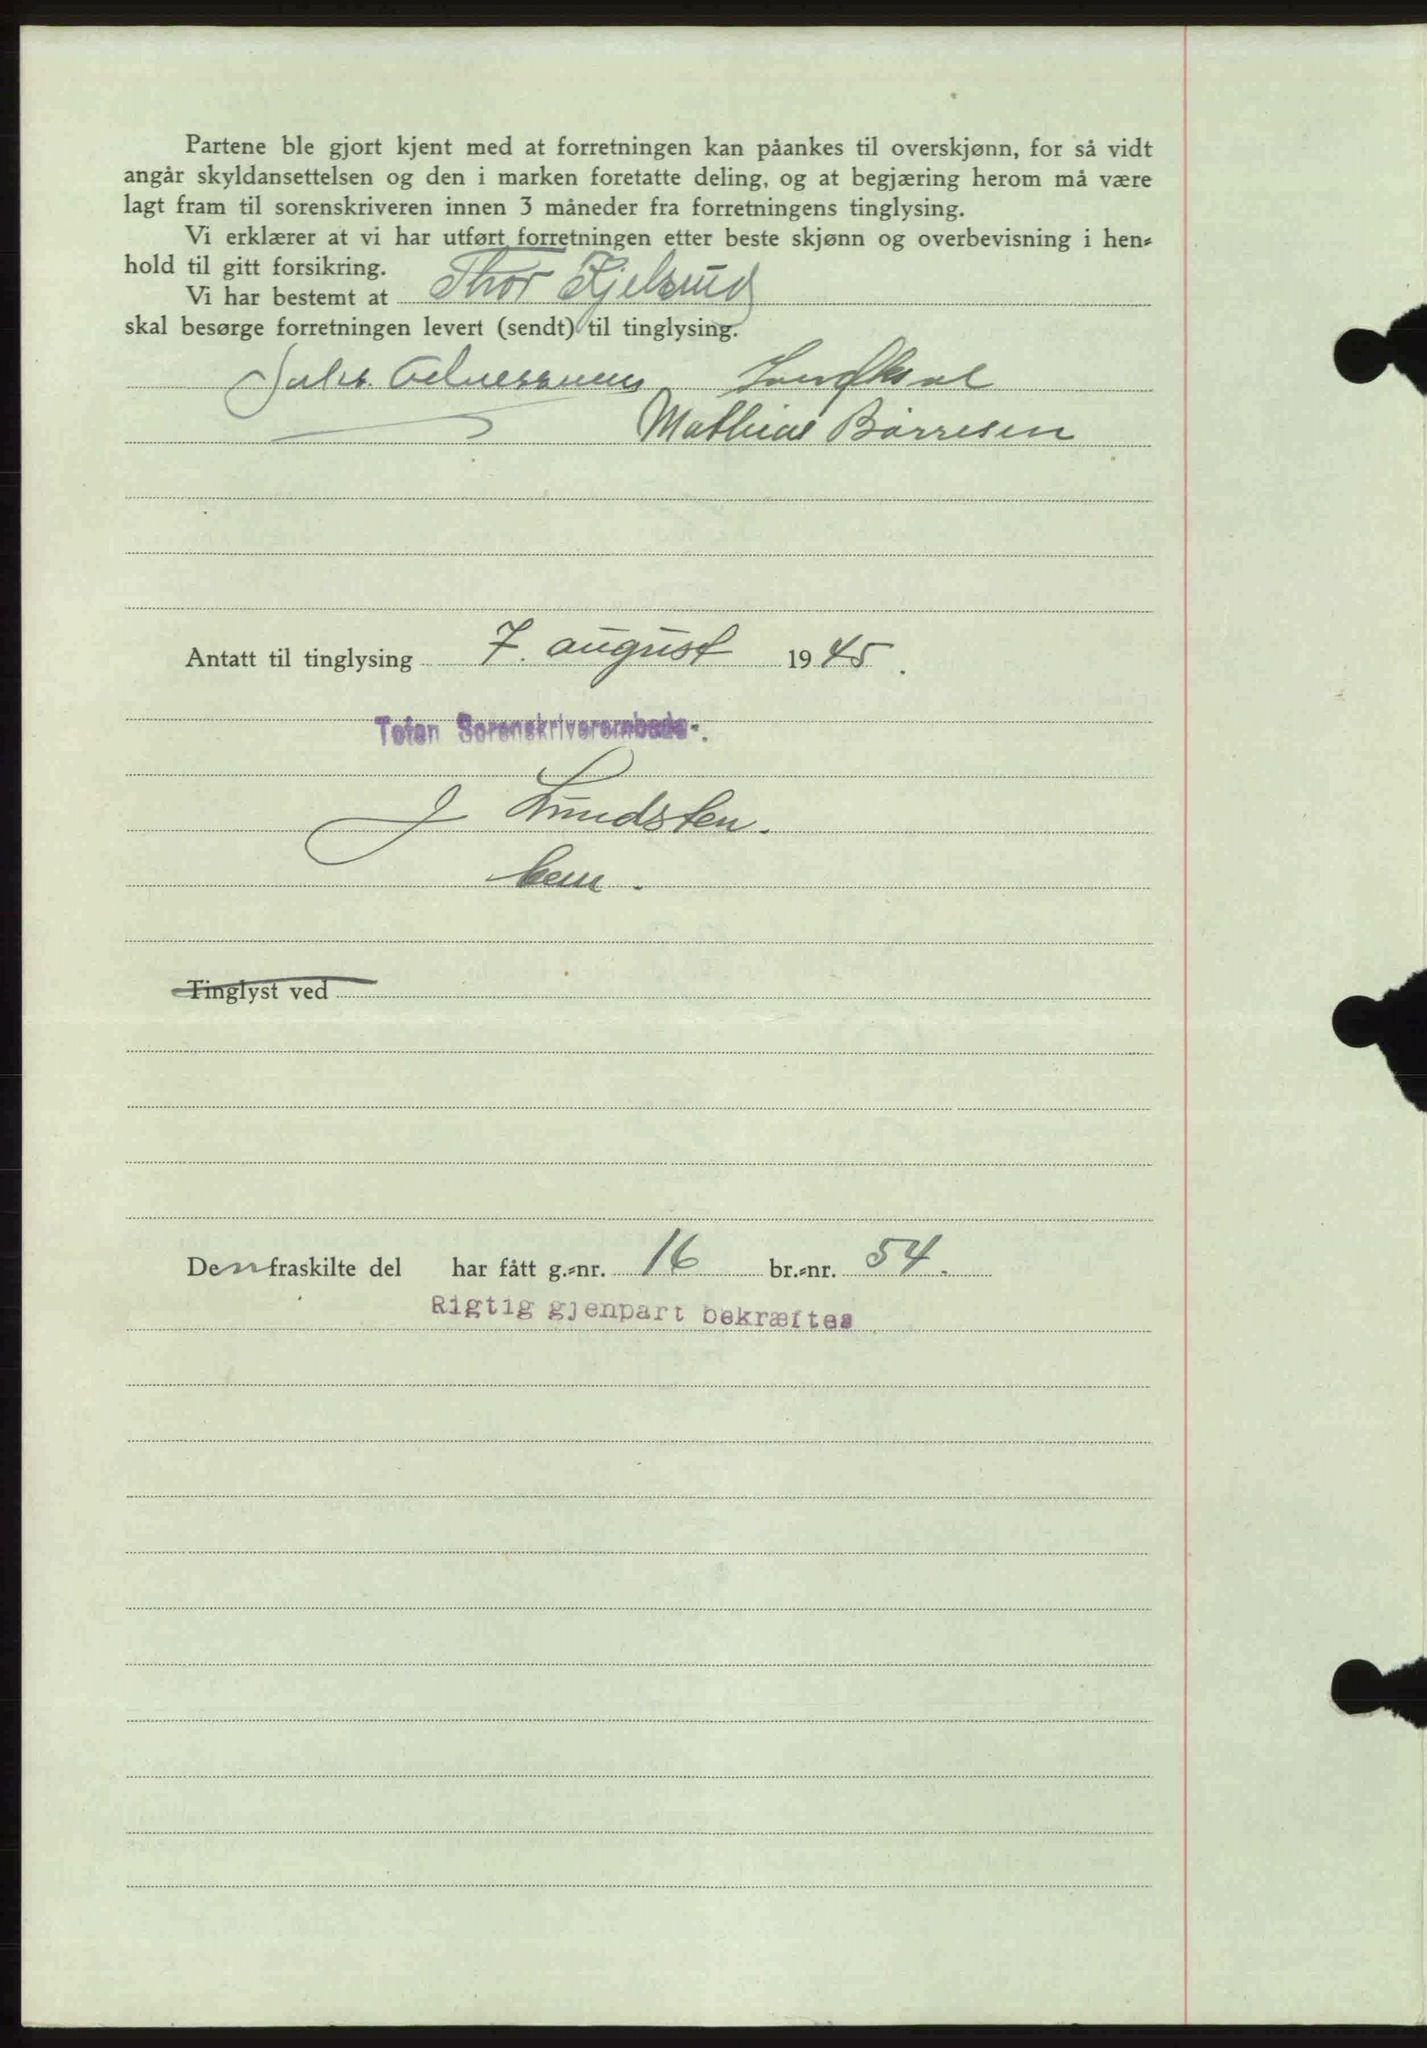 Partene ble gjort kjent med at forretningen kan påankes til overskjønn, for så vidt
angår skyldansettelsen og den i marken foretatte deling, og at begjæring herom må være
lagt fram til sorenskriveren innen 3 måneder fra forretningens tinglysing.
Vi erklærer at vi har utført forretningen etter beste skjønn og overbevisning i hen-
hold til gitt forsikring.
Vi har bestemt at Thor Kjelsrud
skal besørge forretningen levert (sendt) til tinglysing.
Mathias Børresen
Antatt til tinglysing 7. august 1945.
Toten Sorenskriverembede.
J Lundsten.
bem.
Tinglyst ved
Den fraskilte del har fått g.-nr. 16 br.-nr. 54.
Rigtig gjenpart bekræftes